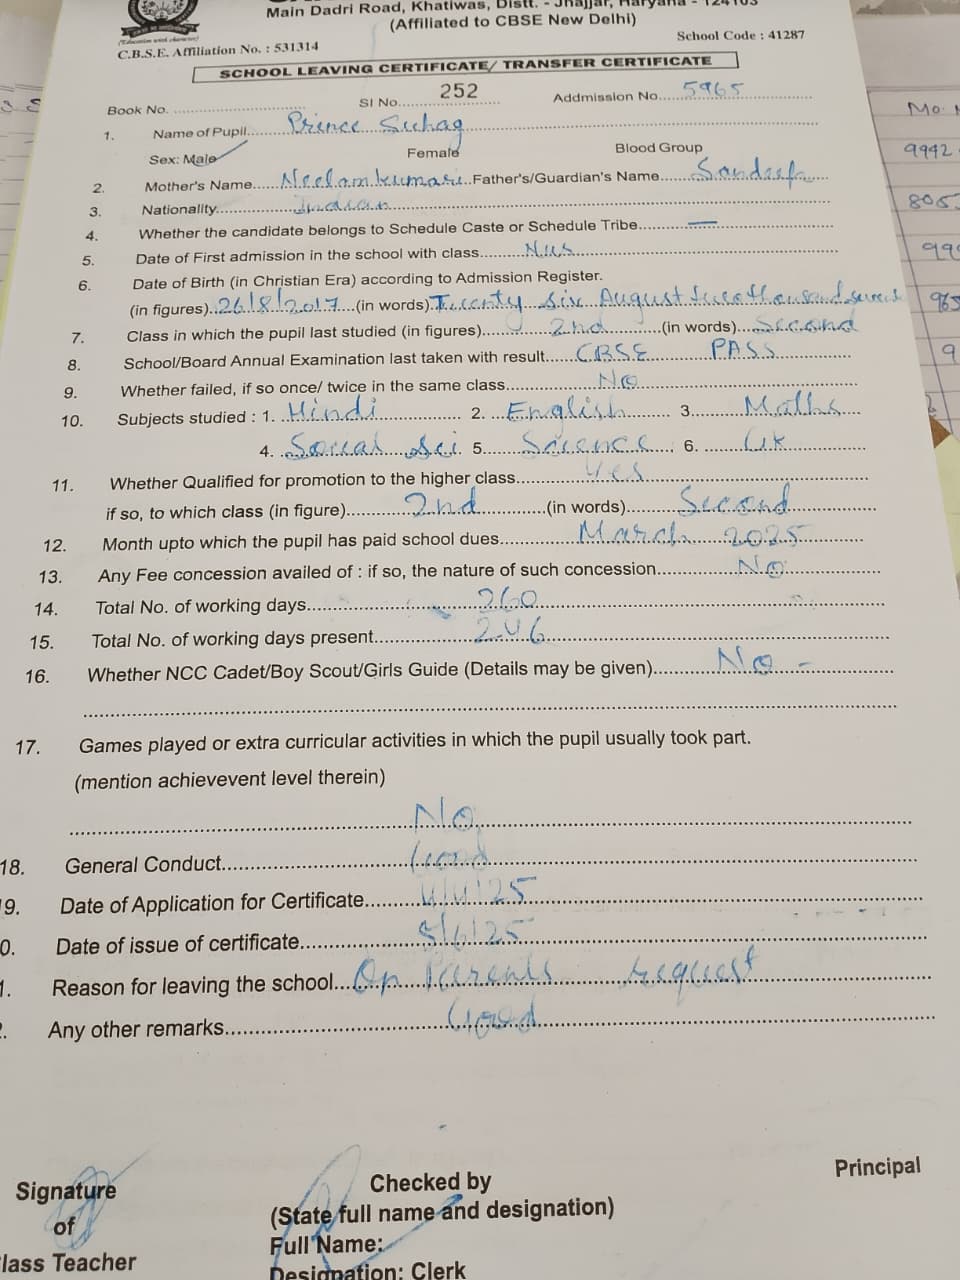 Main Dadri Road, Khatiwas, Distt. - Jhajjar, Haryana - 124103
(Affiliated to CBSE New Delhi)
C.B.S.E. Affiliation No. : 531314
School Code : 41287
SCHOOL LEAVING CERTIFICATE/ TRANSFER CERTIFICATE
Book No. SI No. 252 Addmission No. 5965
1. Name of Pupil Prince Suhag
Sex: Male Female Blood Group
2. Mother's Name Neelam kumari Father's/Guardian's Name Sandeep
3. Nationality indian
4. Whether the candidate belongs to Schedule Caste or Schedule Tribe —
5. Date of First admission in the school with class Nus
6. Date of Birth (in Christian Era) according to Admission Register.
(in figures) 26/8/2017 (in words) Twenty six August two thousand
7. Class in which the pupil last studied (in figures) 2nd (in words) Second
8. School/Board Annual Examination last taken with result CBSE PASS
9. Whether failed, if so once/ twice in the same class No
10. Subjects studied : 1. Hindi 2. English 3. Maths
4. Social Sci 5. Science 6. GK
11. Whether Qualified for promotion to the higher class Yes
if so, to which class (in figure) 2nd (in words) Second
12. Month upto which the pupil has paid school dues March 2025
13. Any Fee concession availed of : if so, the nature of such concession No
14. Total No. of working days 260
15. Total No. of working days present 246
16. Whether NCC Cadet/Boy Scout/Girls Guide (Details may be given) No -
17. Games played or extra curricular activities in which the pupil usually took part.
(mention achievevent level therein)
No
18. General Conduct Good
9. Date of Application for Certificate 4/4/25
0. Date of issue of certificate 5/6/25
1. Reason for leaving the school On Parents request
2. Any other remarks Good
Signature
of
lass Teacher
Checked by
(State full name and designation)
Full Name:
Designation: Clerk
Principal